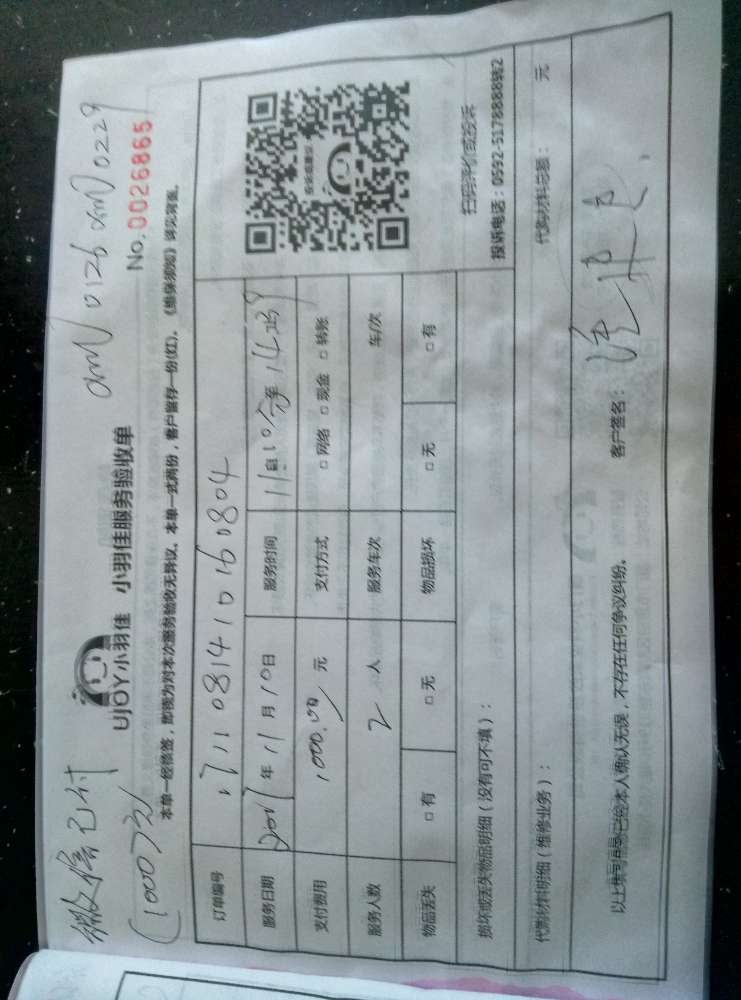 微信已付
(1000元)
UJOY小羽佳 小羽佳服务验收单
No. 0026865
本单一经核签，即视为对本次服务验收无异议。本单一式两份，客户留存一份(红)。《维保须知》详见背面。
订单编号 1711081410160804
服务日期 2017年11月10日 服务时间
支付费用 1000.00元 支付方式 □网络 □现金 □转账
服务人数 2人 服务车次 车/次
物品丢失 □有 □无 物品损坏 □无 □有
扫码评价或投诉
投诉电话：0592-5178888转2
损坏或丢失物品明细（没有可不填）：
代购材料明细（维修业务）： 代购材料总额： 元
以上填写信息已经本人确认无误，不存在任何争议纠纷。 客户签名：